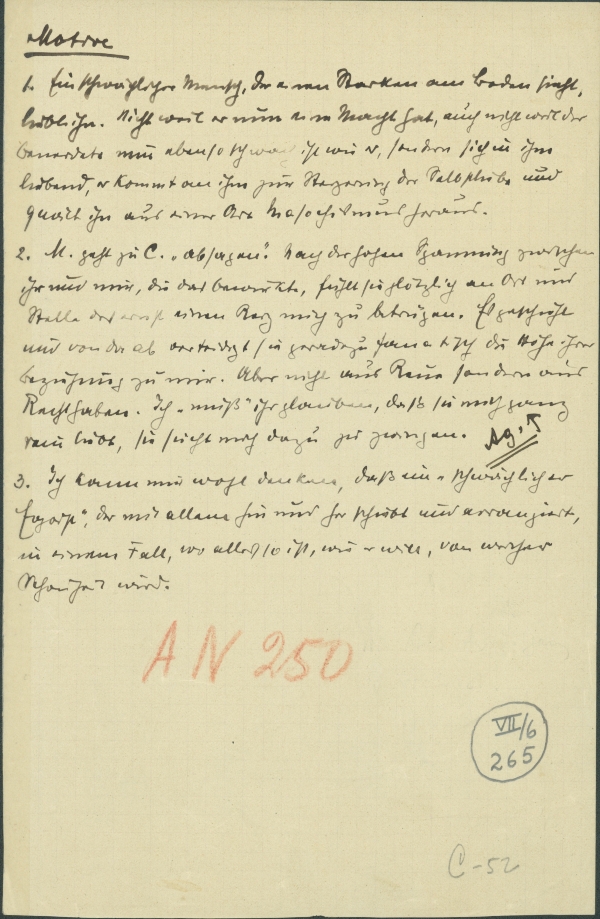 Motive
1. Ein schwächlicher Mensch, der einen Starken am Boden sieht,
liebt ihn. Nicht weil er nun eine Macht hat, auch nicht weil der
beneidete nun ebenso schwach ist wie er, sondern sich in ihm
liebend, er kommt an ihm zur Steigerung der Selbstliebe und
quält ihn aus einer Art Masochismus heraus.
2. M. geht zu C. „absagen". Nach der hohen Spannung zwischen
ihr und mir, die das bewirkte, fühlt sie plötzlich an Ort und
Stelle des einen Reiz mich zu betrügen. Es geschieht
und von da ab verteidigt sie geradezu fanatisch die Höhe ihrer
Beziehung zu mir. Aber nicht aus Reue sondern aus
Rechthaben. Ich „muß" ihr glauben, daß sie mich ganz
rein liebt, sie sucht mich dazu zu zwingen.
Ag.
3. Ich kann mir wohl denken, daß ein „schwächlicher
", der mit allem hin und her schiebt und arrangiert,
in einem Fall, wo alles so ist, wie er will, von
Schönheit wird.
AN 250
VII/6
265
C-52